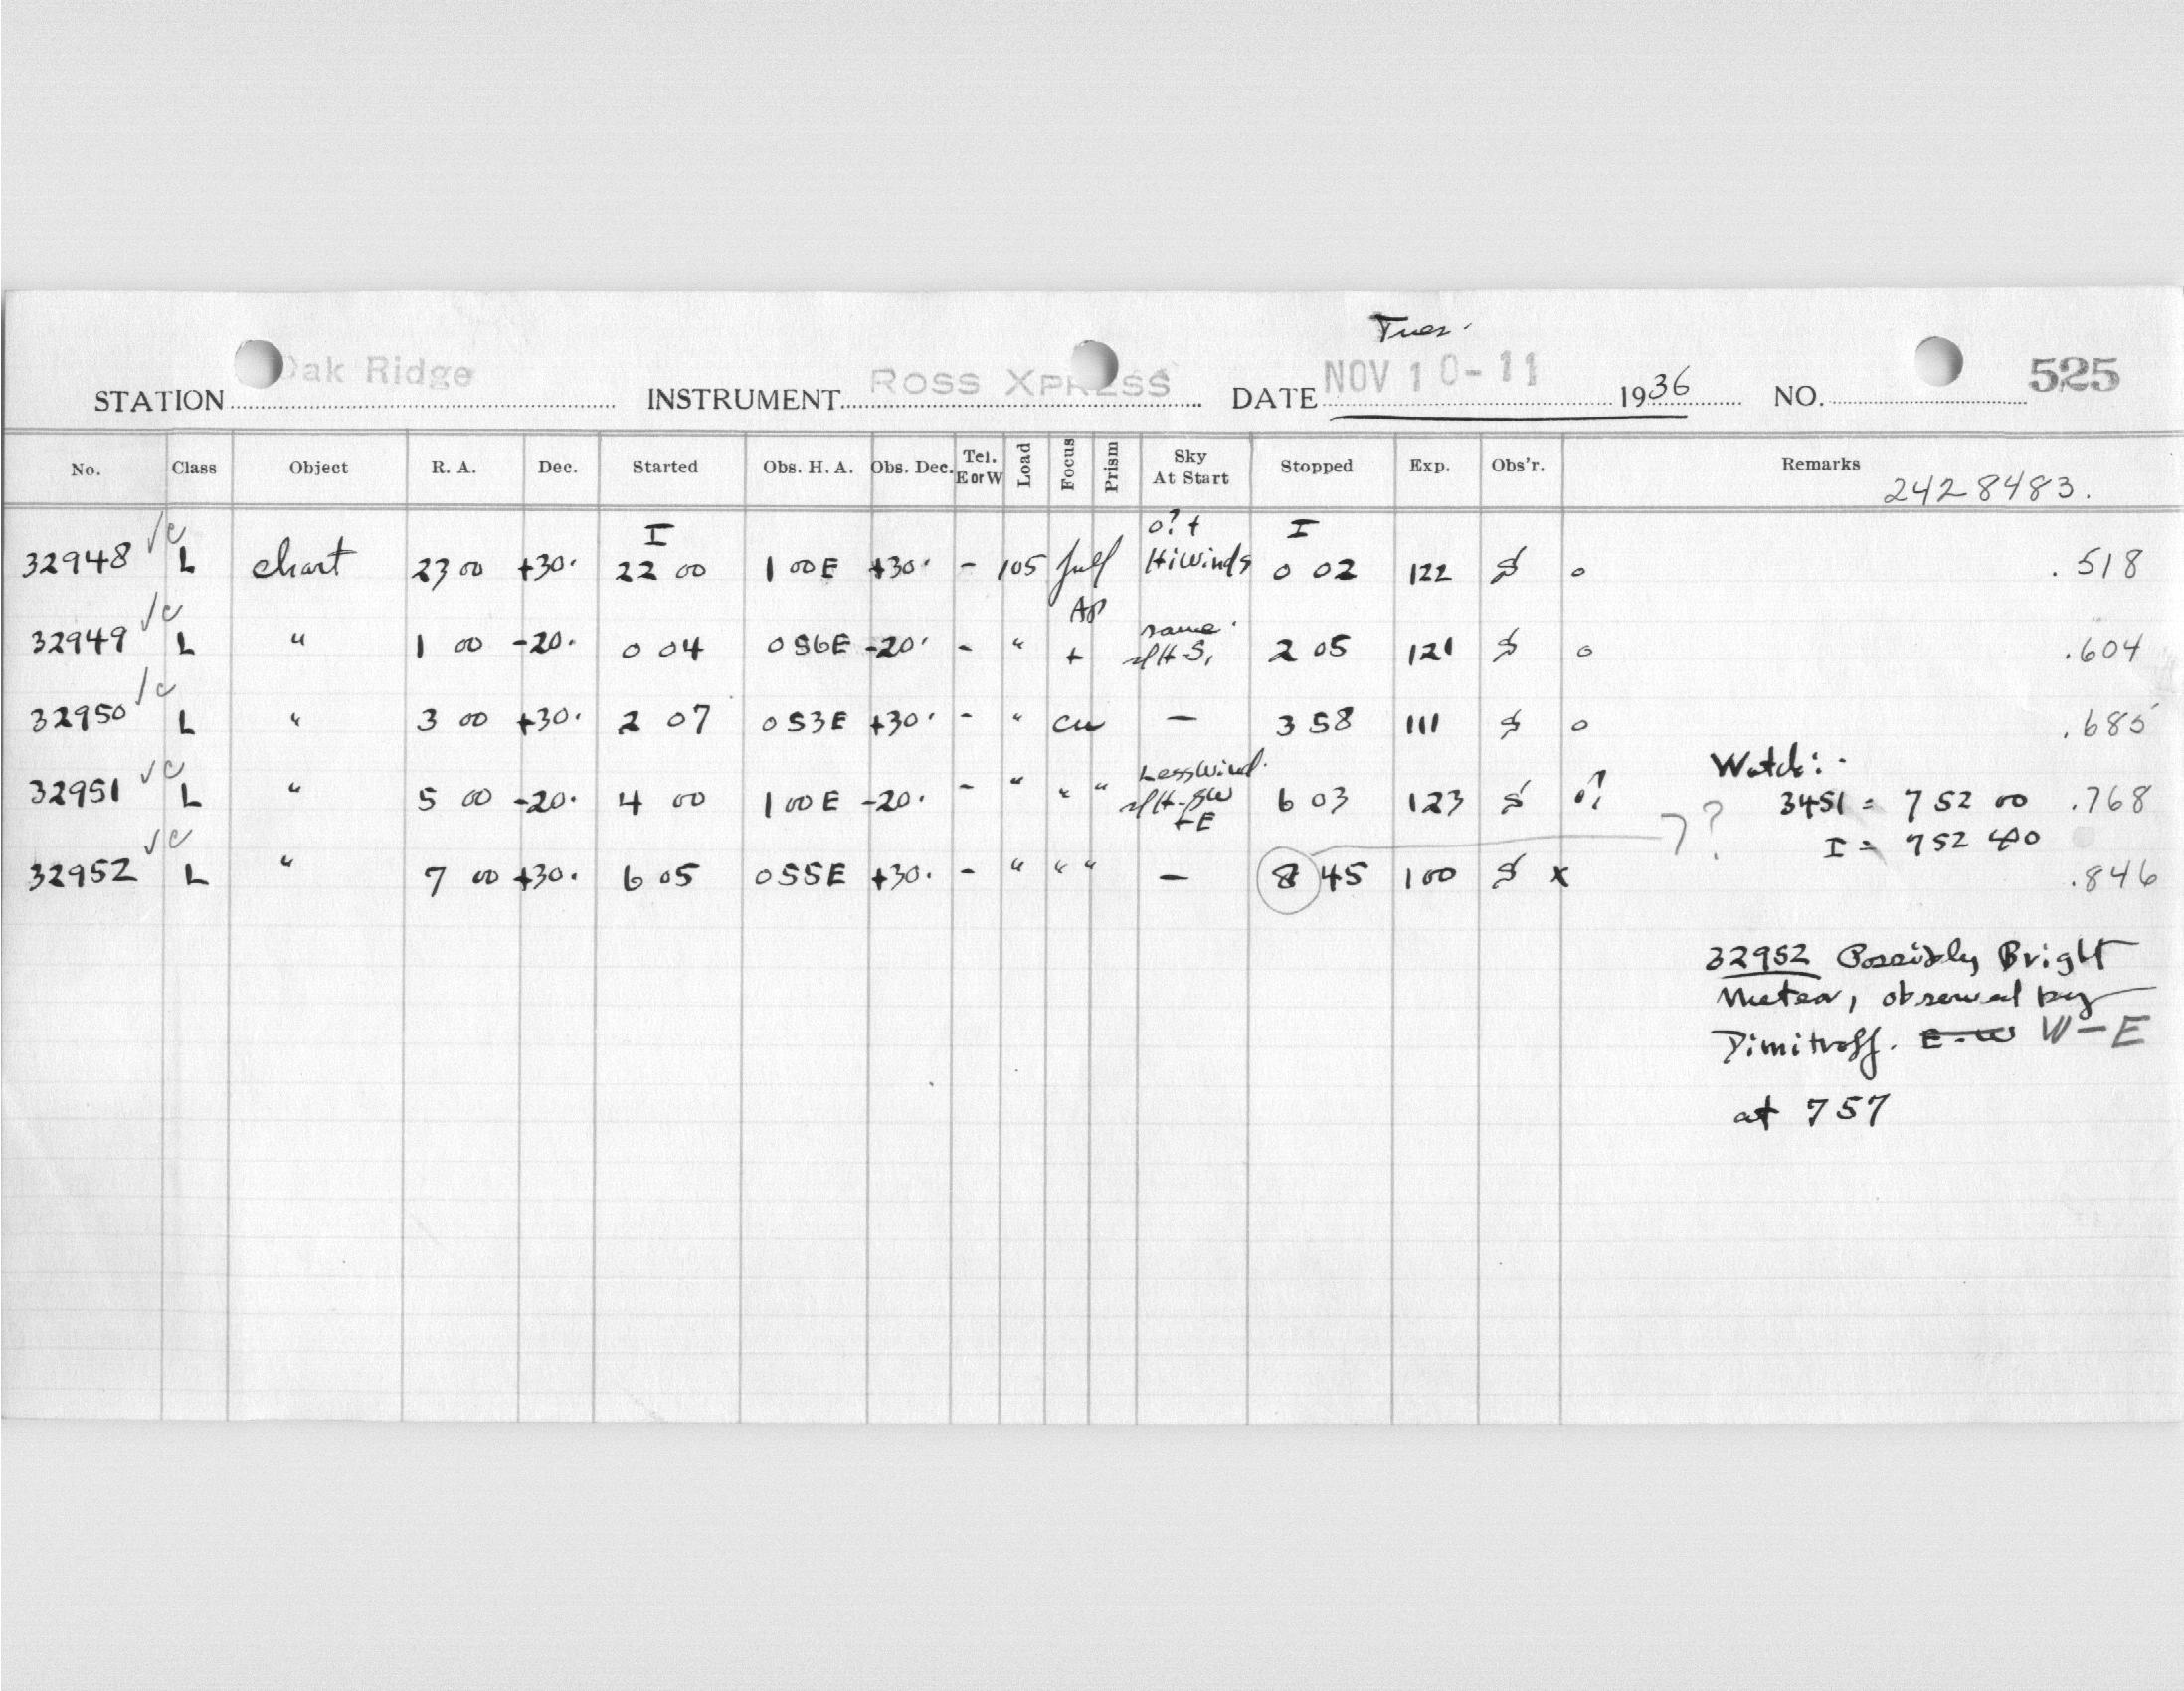 Tues.
STATION Oak Ridge INSTRUMENT ROSS XPRESS DATE NOV 10-11 1936 NO. 525
No. Class Object R. A. Dec. Started Obs. H. A. Obs. Dec. Tel. E or W Load Focus Prism Sky At Start Stopped Exp. Obs'r. Remarks
2428483.
I o?+ I
32948 √c L chart 23 00 +30. 22 00 1 00E +30. - 105 full Hi Winds 0 02 122 o .518
Ap
32949 √c L " 1 00 -20. 0 04 0 56E -20. - " + same. 2 05 121 o .604
32950 √c L " 3 00 +30. 2 07 0 53E +30. - " cu — 3 58 111 o .685
Watch:
32951 √c L " 5 00 -20. 4 00 1 00E -20. - " " " Less Wind. SW + E 6 03 123 3451 = 7 52 00 .768
7? I = 752 40
32952 √c L " 7 00 +30. 6 05 0 55E +30. - " " " — 8 45 100 x .846
32952 Possibly Bright
Meteor, observed by
Dimitroff. E-W W-E
at 757